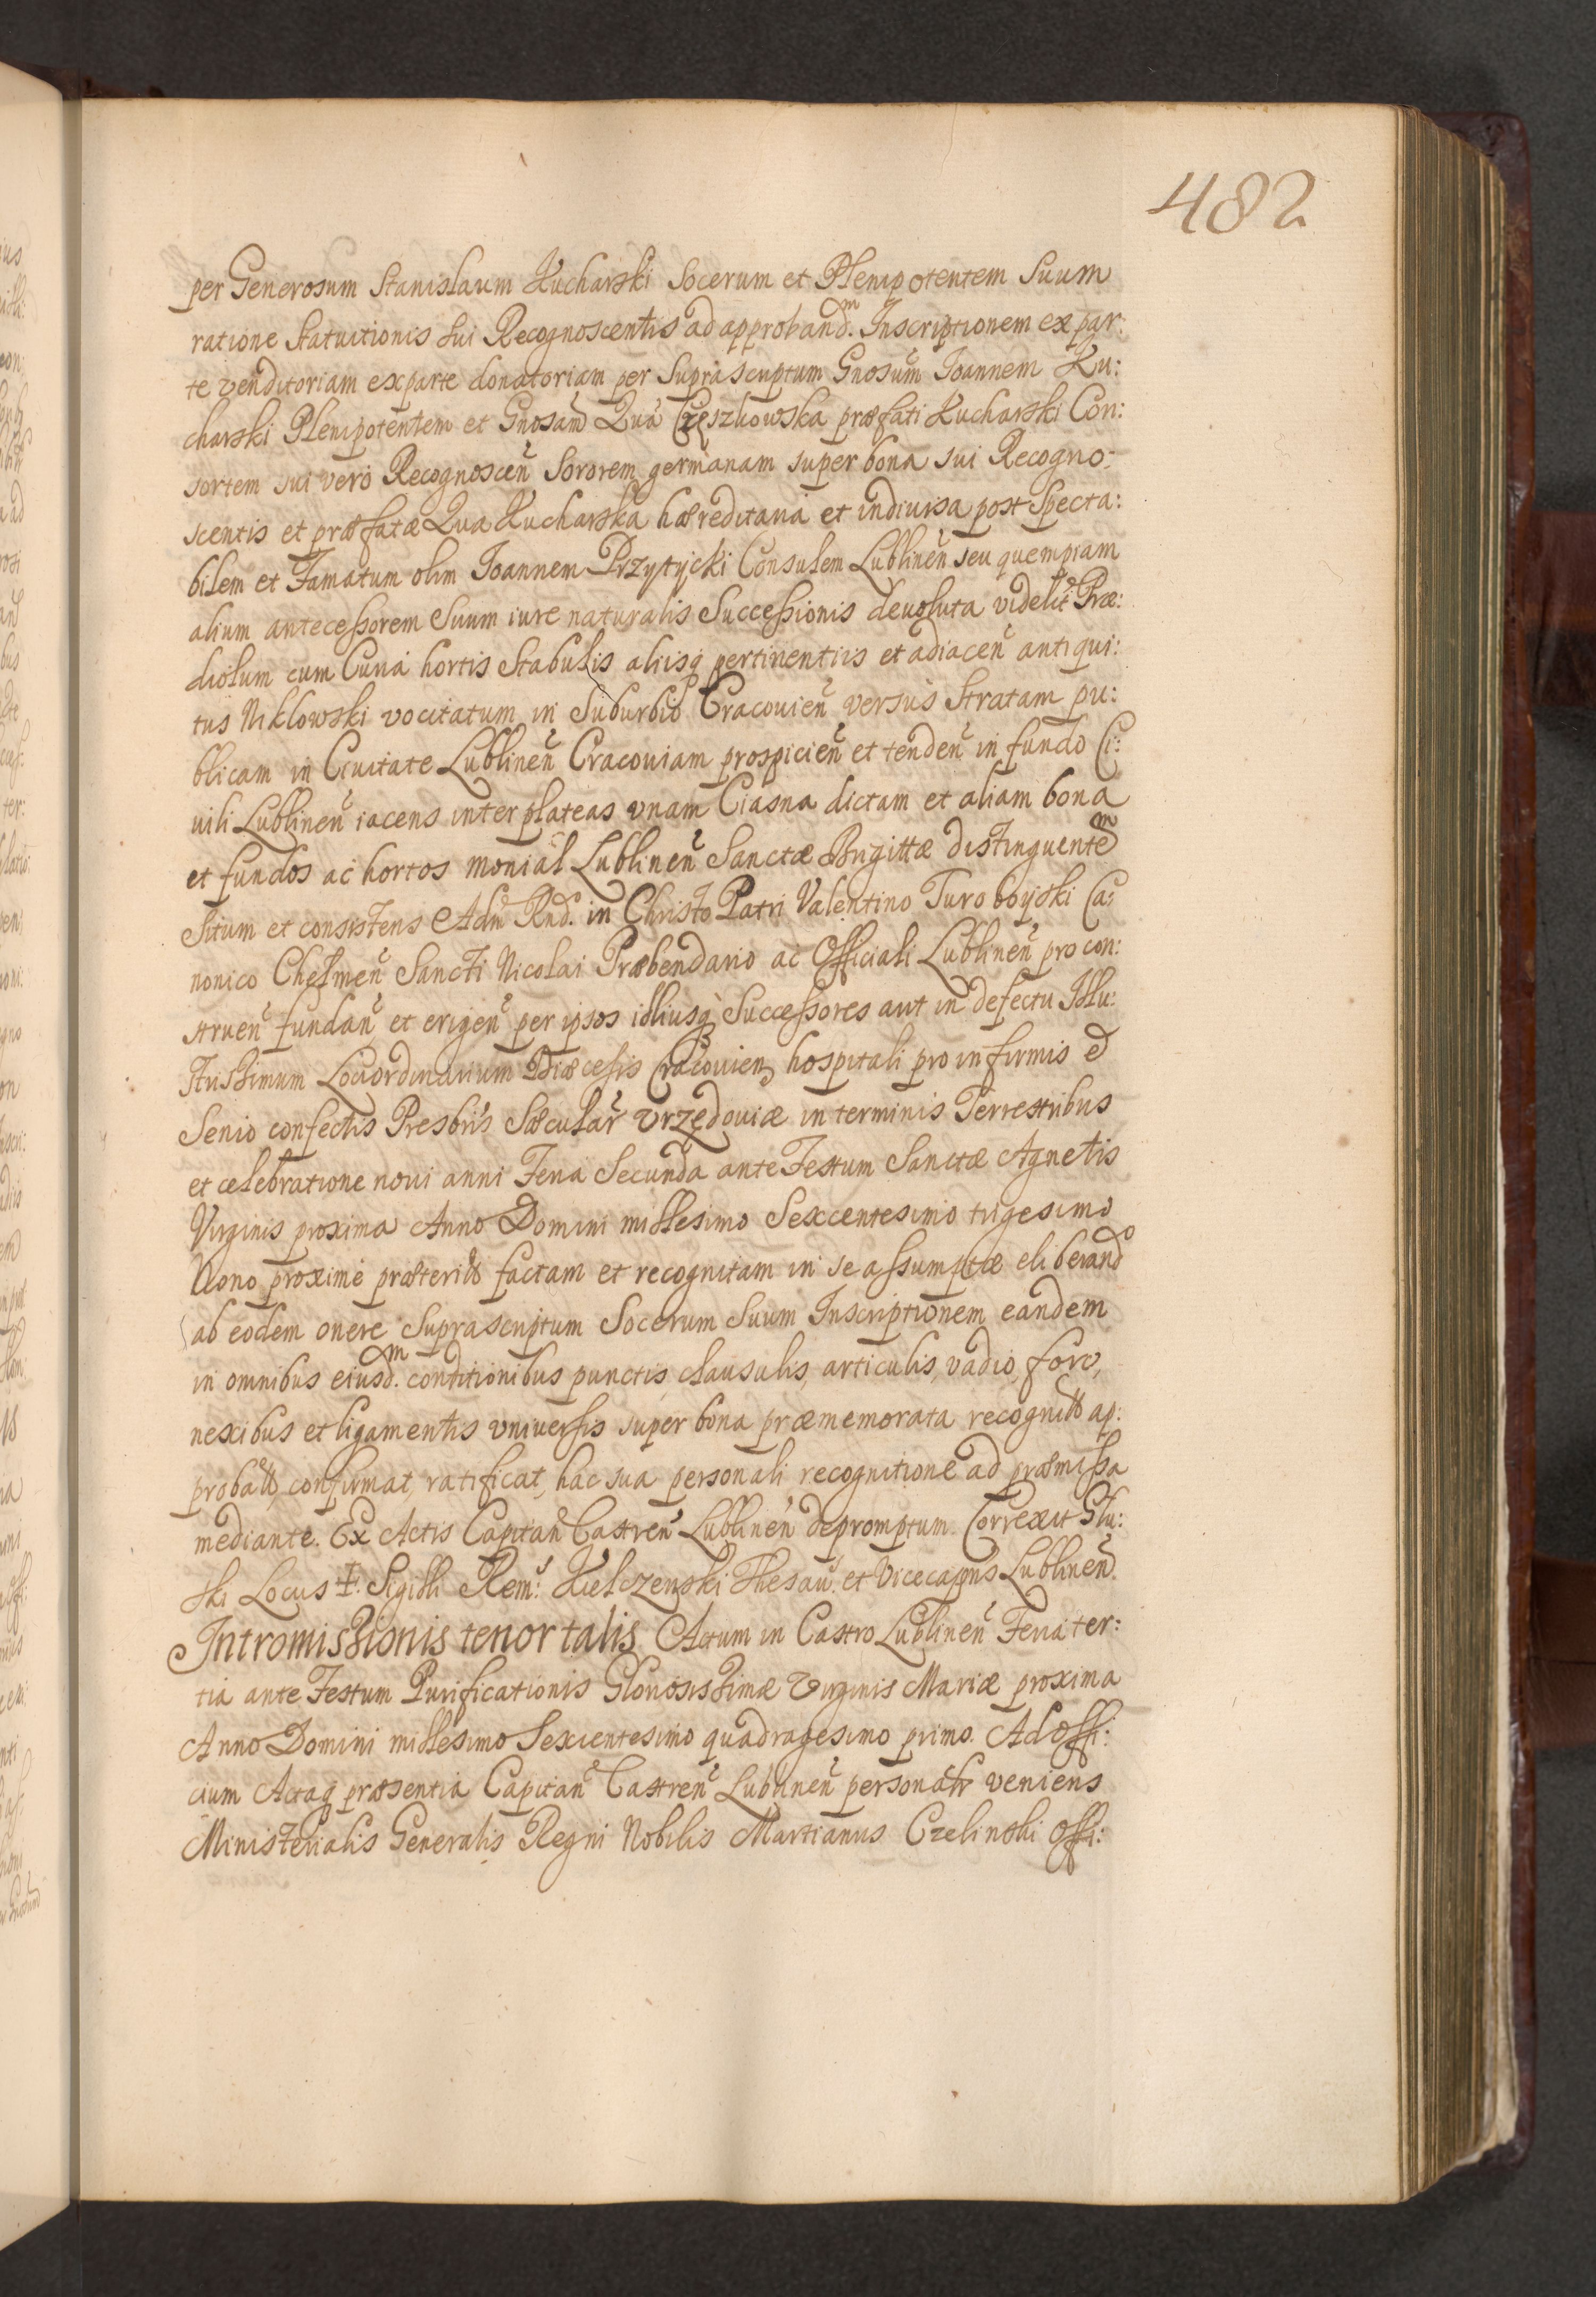 482
per Generosum Stanislaum Kucharski Socerum et Plenipotentem Suum
ratione statuitionis sui Recognoscentis ad approband.m Inscriptionem ex par:
te venditoriam ex parte donatoriam per Suprascriptum Gnosum Joannem Ku:
charski Plenipotentem et Gnosam Qua præfati Kucharski Con:
sortem sui vero Recognoscen Sororem germanam super bona sui Recogno:
scentis et præfatæ Qua Kucharska hæreditaria et indiuisa post Specta:
bilem et Famatum olim Joannem Przytycki Consulem Lublinen seu quempiam
alium antecessorem Suum iure naturalis Successionis deuoluta videlit Præ:
diolum cum Curia hortis Stabulis aliisq pertinentiis et adiacen antiqui:
tus Niklowski vocitatum in Suburbio Cracouien versus Stratam pu:
blicam in Ciuitate Lublinen Cracouiam prospicien et tenden in fundo Ci:
uili Lublinen iacens inter plateas vnam Ciasna dictam et aliam bona
et fundos ac hortos monial Lublinen Sanctæ Brigittæ distinguentem
Situm et consistens Adm Rnd. in Christo Patri Valentino Turoboyski Ca:
nonico Chelmen Sancti Nicolai Præbendario ac Officiali Lublinen pro con:
struen fundan et erigen per ipsos illiusq Successores aut in defectu Illu:
strissimum Locordinarium Diæcesis Cracouien hospitali pro infirmis et
Senio confectis Presbris Sæcular Vrzędouiæ in terminis Terrestribus
et celebratione noui anni Feria Secunda ante Festum Sanctæ Agnetis
Virginis proxima Anno Domini millesimo Sexcentesimo trigesimo
Nono proxime præterito factam et recognitam in se assumptæ eliberando
ab eodem onere Suprascriptum Socerum Suum Inscriptionem eandem
in omnibus eiusd.m conditionibus punctis, clausulis, articulis, vadio, foro,
nexibus et ligamentis vniuersis super bona præmemorata recognitis ap:
probat, confirmat, ratificat, hac sua personali recognitione ad præmissa
mediante. Ex Actis Capitan Castren Lublinen depromptum. Correxit Glu:
ski Locus ‡. Sigilli Rem: Kielczewski Thesau: et Vicecapns Lublinen.
Intromissionis tenor talis Actum in Castro Lublinen Feria ter:
tia ante Festum Purificationis Gloriosissimæ Virginis Mariæ proxima
Anno Domini millesimo Sexcentesimo quadragesimo primo. Ad offi:
cium Actaq præsentia Capitan Castren Lublinen personalr veniens
Ministerialis Generalis Regni Nobilis Martianus Czelinski offi: